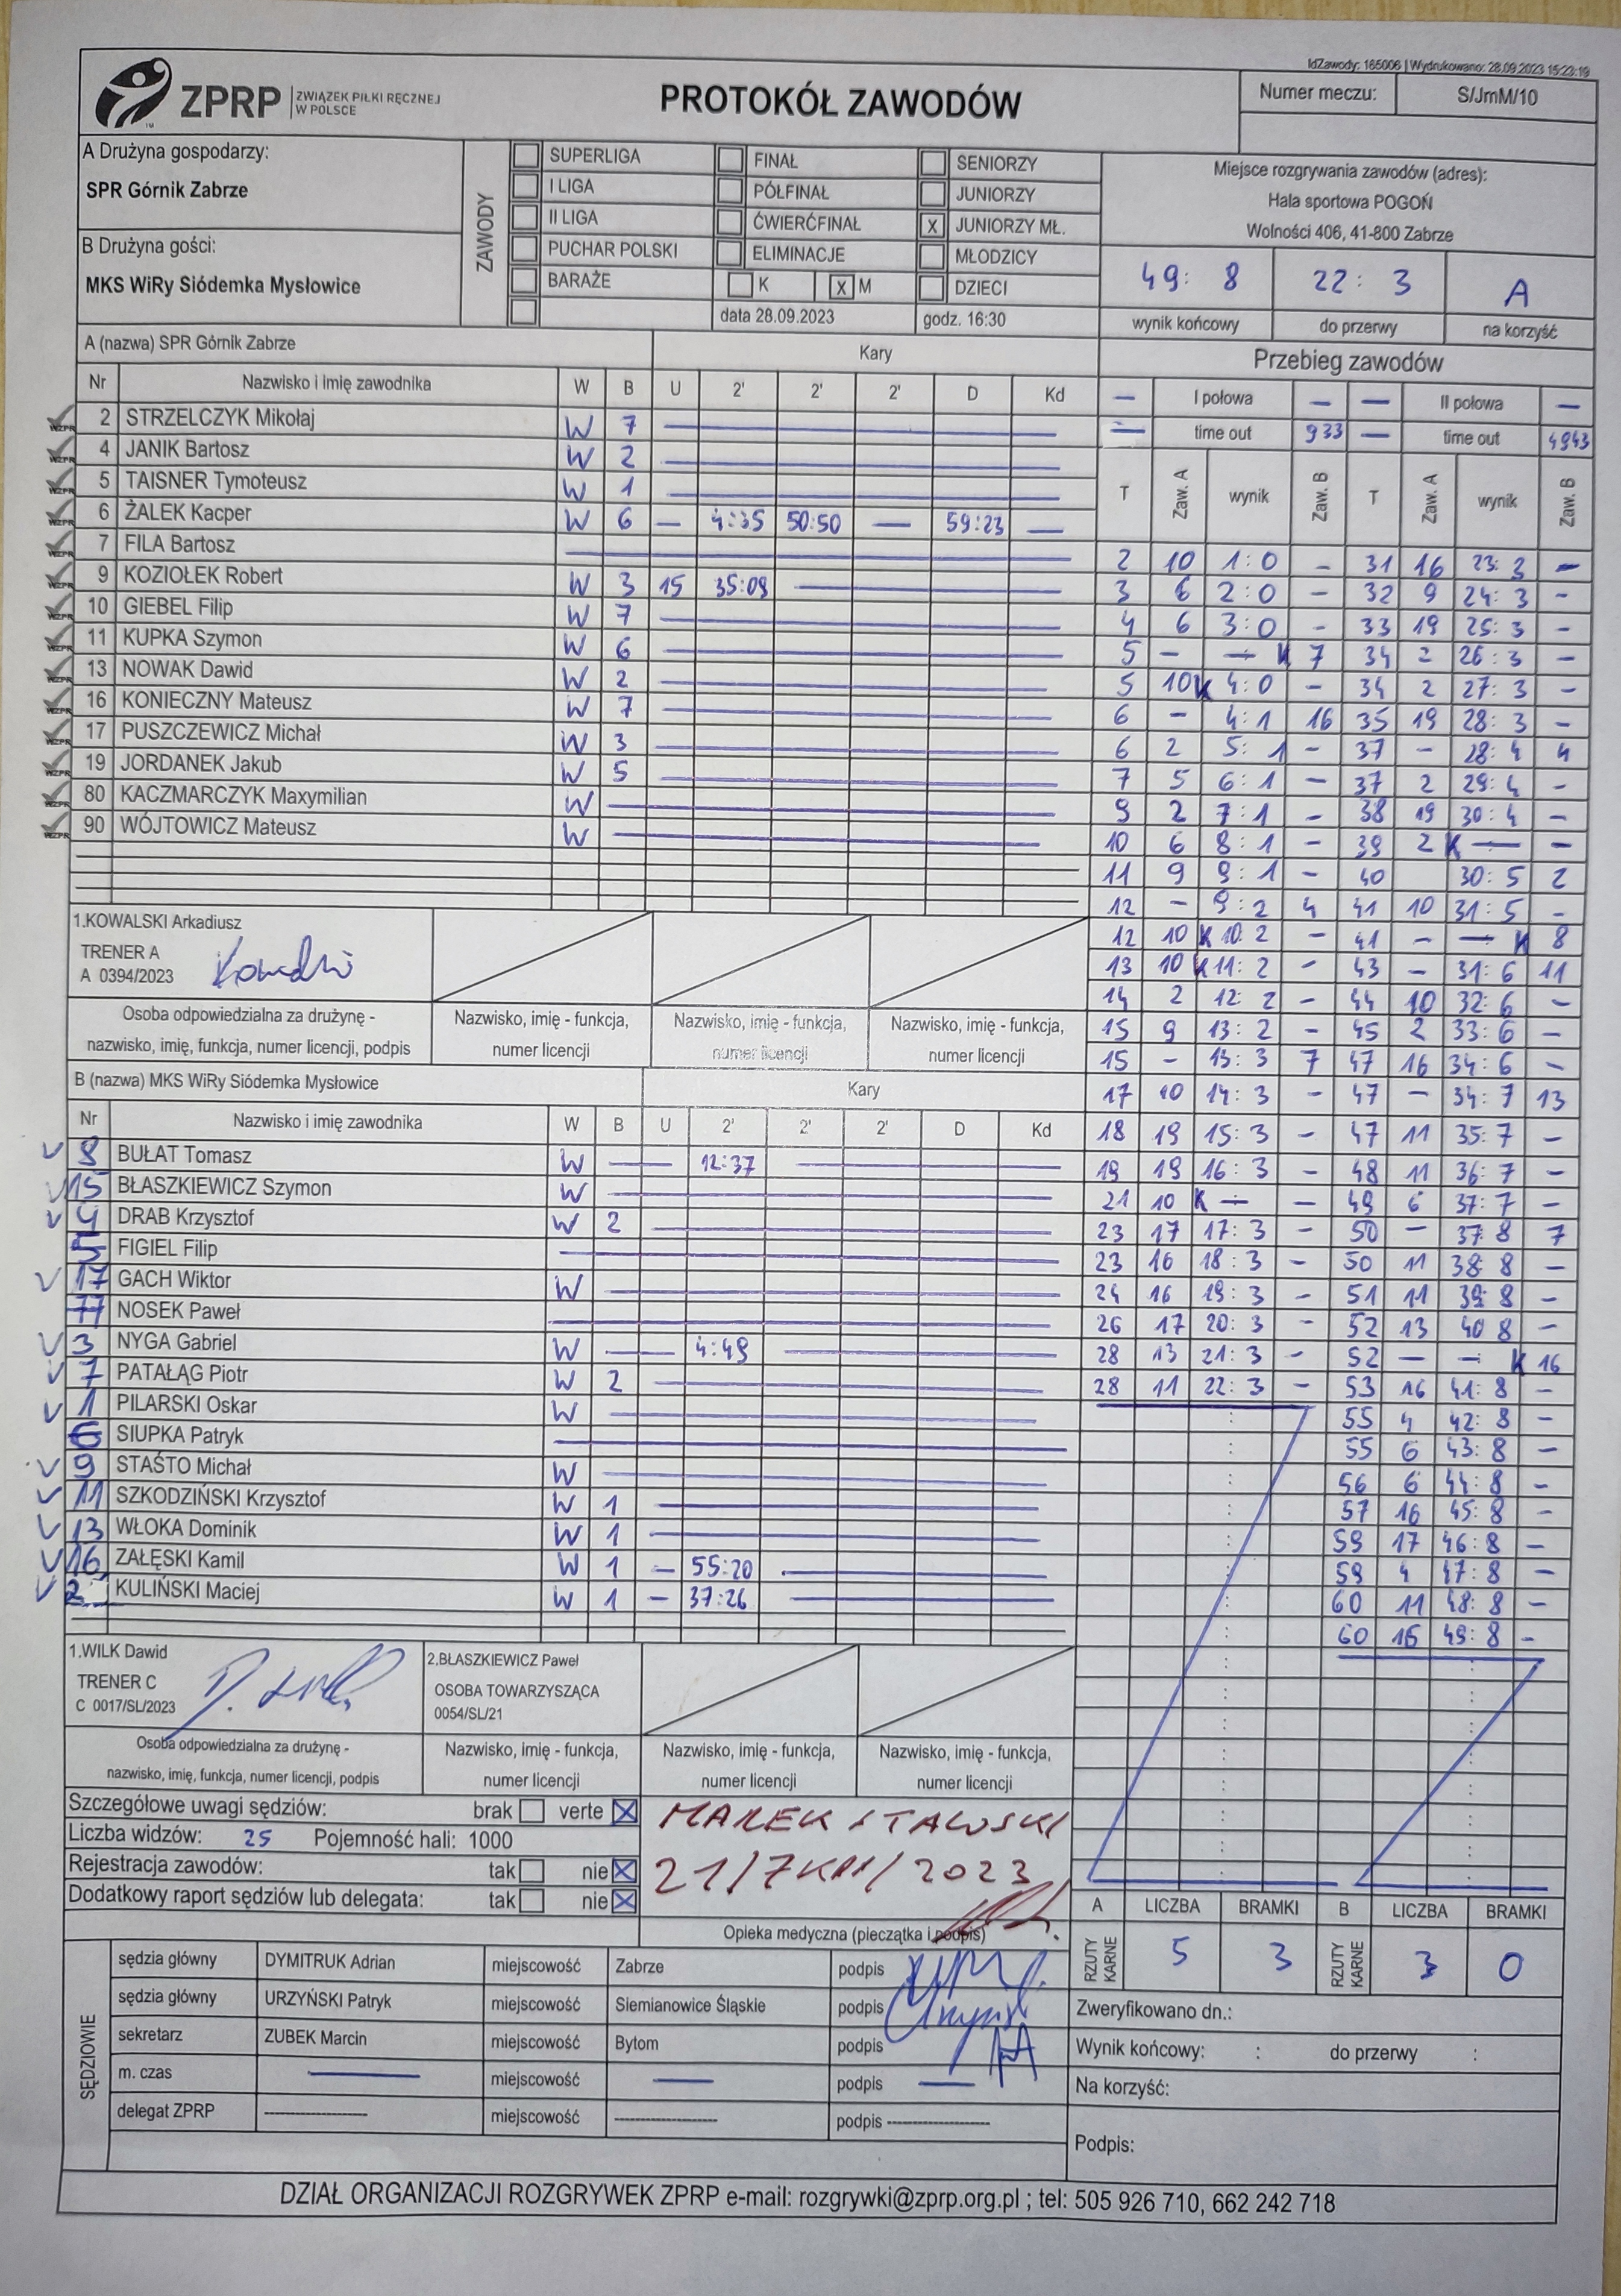 IdZawody: 165006 | Wydrukowano: 28.09.2023 15:23:19
ZPRP ZWIĄZEK PIŁKI RĘCZNEJ W POLSCE
PROTOKÓŁ ZAWODÓW
Numer meczu: S/JmM/10
A Drużyna gospodarzy:
SPR Górnik Zabrze
B Drużyna gości:
MKS WiRy Siódemka Mysłowice
ZAWODY
SUPERLIGA FINAŁ SENIORZY
I LIGA PÓŁFINAŁ JUNIORZY
II LIGA ĆWIERĆFINAŁ X JUNIORZY MŁ.
PUCHAR POLSKI ELIMINACJE MŁODZICY
BARAŻE K X M DZIECI
data 28.09.2023 godz. 16:30
Miejsce rozgrywania zawodów (adres):
Hala sportowa POGOŃ
Wolności 406, 41-800 Zabrze
49: 8 22: 3 A
wynik końcowy do przerwy na korzyść
A (nazwa) SPR Górnik Zabrze Kary
Nr Nazwisko i imię zawodnika W B U 2' 2' 2' D Kd
2 STRZELCZYK Mikołaj W 7
4 JANIK Bartosz W 2
5 TAISNER Tymoteusz W 1
6 ŻALEK Kacper W 6 — 4:35 50:50 — 59:23 —
7 FILA Bartosz
9 KOZIOŁEK Robert W 3 15 35:09
10 GIEBEL Filip W 7
11 KUPKA Szymon W 6
13 NOWAK Dawid W 2
16 KONIECZNY Mateusz W 7
17 PUSZCZEWICZ Michał W 3
19 JORDANEK Jakub W 5
80 KACZMARCZYK Maxymilian W
90 WÓJTOWICZ Mateusz W
1.KOWALSKI Arkadiusz
TRENER A
A 0394/2023
Osoba odpowiedzialna za drużynę -
nazwisko, imię, funkcja, numer licencji, podpis
Nazwisko, imię - funkcja,
numer licencji
Nazwisko, imię - funkcja,
numer licencji
Nazwisko, imię - funkcja,
numer licencji
B (nazwa) MKS WiRy Siódemka Mysłowice Kary
Nr Nazwisko i imię zawodnika W B U 2' 2' 2' D Kd
8 BUŁAT Tomasz W — 12:37
15 BŁASZKIEWICZ Szymon W
4 DRAB Krzysztof W 2
5 FIGIEL Filip
17 GACH Wiktor W
77 NOSEK Paweł
3 NYGA Gabriel W — 4:49
7 PATAŁĄG Piotr W 2
1 PILARSKI Oskar W
6 SIUPKA Patryk
9 STAŚTO Michał W
11 SZKODZIŃSKI Krzysztof W 1
13 WŁOKA Dominik W 1
16 ZAŁĘSKI Kamil W 1 — 55:20
2 KULIŃSKI Maciej W 1 — 37:26
1.WILK Dawid
TRENER C
C 0017/SL/2023
2.BŁASZKIEWICZ Paweł
OSOBA TOWARZYSZĄCA
0054/SL/21
Osoba odpowiedzialna za drużynę -
nazwisko, imię, funkcja, numer licencji, podpis
Nazwisko, imię - funkcja,
numer licencji
Nazwisko, imię - funkcja,
numer licencji
Nazwisko, imię - funkcja,
numer licencji
Szczegółowe uwagi sędziów: brak verte X
Liczba widzów: 25 Pojemność hali: 1000
Rejestracja zawodów: tak nie X
Dodatkowy raport sędziów lub delegata: tak nie X
21/7KM/2023
Opieka medyczna (pieczątka i podpis)
SĘDZIOWIE
sędzia główny DYMITRUK Adrian miejscowość Zabrze podpis
sędzia główny URZYŃSKI Patryk miejscowość Siemianowice Śląskie podpis
sekretarz ZUBEK Marcin miejscowość Bytom podpis
m. czas — miejscowość — podpis —
delegat ZPRP ---- miejscowość ---- podpis ----
Przebieg zawodów
— I połowa — — II połowa —
— time out 933 — time out 4943
T Zaw. A wynik Zaw. B T Zaw. A wynik Zaw. B
2 10 1:0 - 31 16 23:3 -
3 6 2:0 - 32 9 24:3 -
4 6 3:0 - 33 19 25:3 -
5 - — K 7 34 2 26:3 -
5 10 K 4:0 - 34 2 27:3 -
6 - 4:1 16 35 19 28:3 -
6 2 5:1 - 37 - 28:4 4
7 5 6:1 - 37 2 29:4 -
9 2 7:1 - 38 19 30:4 -
10 6 8:1 - 39 2 K — -
11 9 9:1 - 40 30:5 2
12 - 9:2 4 41 10 31:5 -
12 10 K 10:2 - 41 - — K 8
13 10 K 11:2 - 43 - 31:6 11
14 2 12:2 - 44 10 32:6 -
15 9 13:2 - 45 2 33:6 -
15 - 13:3 7 47 16 34:6 -
17 10 14:3 - 47 - 34:7 13
18 19 15:3 - 47 11 35:7 -
19 19 16:3 - 48 11 36:7 -
21 10 K — - 49 6 37:7 -
23 17 17:3 - 50 - 37 8 7
23 16 18:3 - 50 11 38:8 -
24 16 19:3 - 51 11 39:8 -
26 17 20:3 - 52 13 40 8 -
28 13 21:3 - 52 — — K 16
28 11 22:3 - 53 16 41:8 -
55 4 42:8 -
55 6 43:8 -
56 6 44:8 -
57 16 45:8 -
59 17 46:8 -
59 4 47:8 -
60 11 48:8 -
60 16 49:8 -
A LICZBA BRAMKI B LICZBA BRAMKI
RZUTY KARNE 5 3 RZUTY KARNE 3 0
Zweryfikowano dn.:
Wynik końcowy: : do przerwy :
Na korzyść:
Podpis:
DZIAŁ ORGANIZACJI ROZGRYWEK ZPRP e-mail: rozgrywki@zprp.org.pl ; tel: 505 926 710, 662 242 718